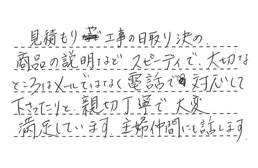 見積もり工事の日取り決め
商品の説明など スピーディで、大切な
ところはメールではなく電話で対応して
下さったりと、親切丁寧で大変
満足しています。主婦仲間にも話します